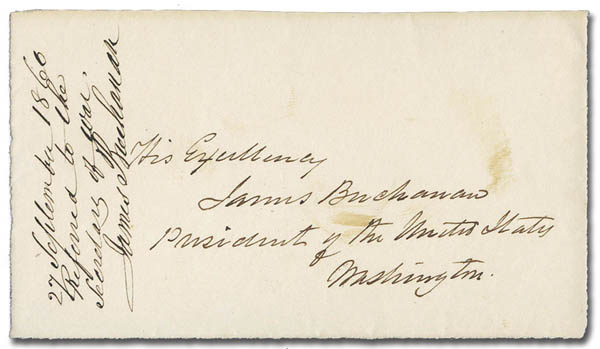 27 September 1860
Referred to the
Secretary of War.
James Buchanan
His Excellency
James Buchanan
President of the United States
Washington.